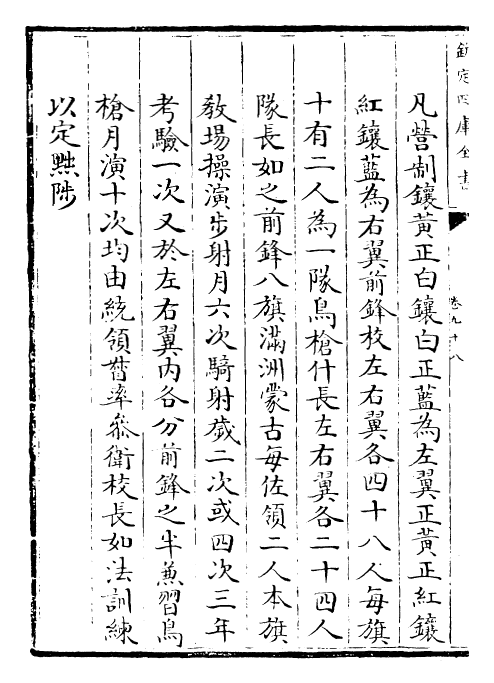 欽定四庫全書
卷九十八
凡營制鑲黃正白鑲白正藍為左翼正黃正紅鑲
紅鑲藍為右翼前鋒校左右翼各四十八人每旗
十有二人為一隊鳥槍什長左右翼各二十四人
隊長如之前鋒八旗滿洲蒙古每佐領二人本旗
教場操演步射月六次騎射歲二次或四次三年
考驗一次又於左右翼内各分前鋒之半兼習鳥
槍月演十次均由統領督率叅衛校長如法訓練
以定黜陟